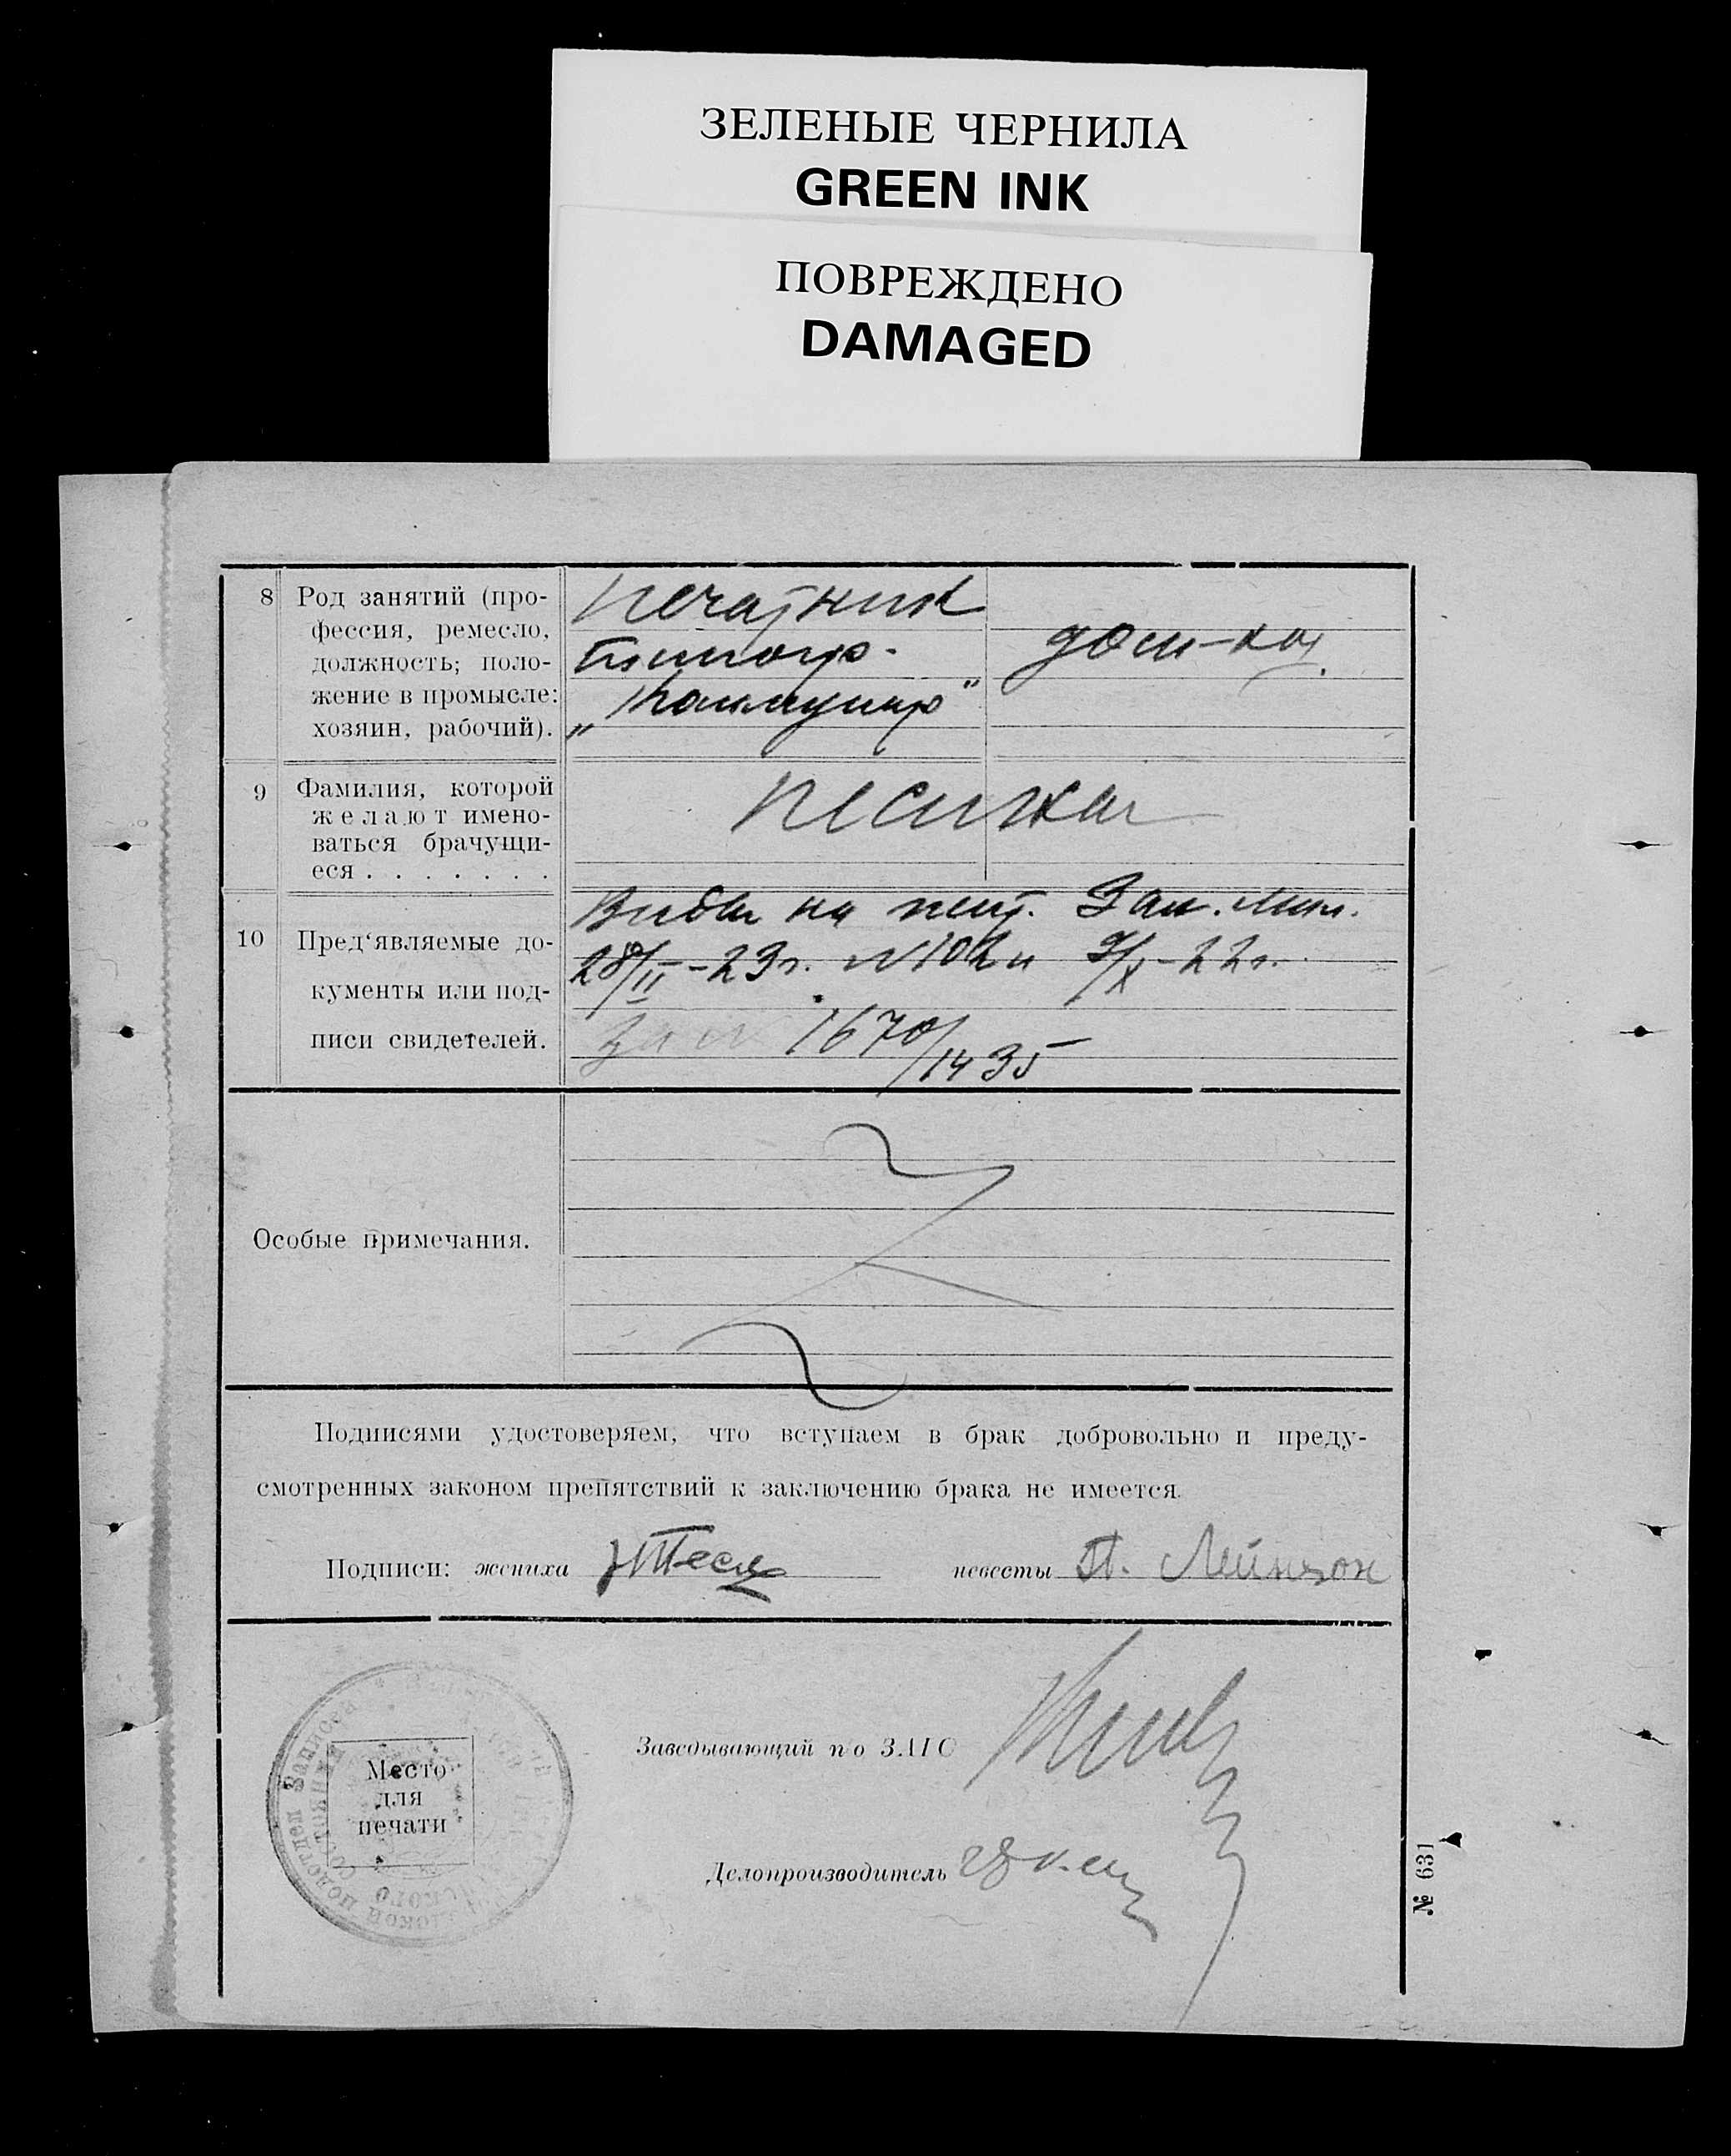 ЗЕЛЕНЫЕ ЧЕРНИЛА
GREEN INK
ПОВРЕЖДЕНО
DAMAGED
8 Род занятий (про-
фессия, ремесло,
должность; поло-
жение в промысле:
хозяин, рабочий).
Печатник
типогр.
дом-хоз.
9 Фамилия, которой
желают имено-
ваться брачущи-
еся . . . . . . .
10 Пред‘являемые до-
кументы или под-
писи свидетелей.
Виды на
28/II-23г. №102 и 9/X-22г.
1670/1435
Особые примечания.
Подписями удостоверяем, что вступаем в брак добровольно и преду-
смотренных законом препятствий к заключению брака не имеется.
Подписи: жениха невесты П. Лейнзон
Место
для
печати
Подотдел Записи
Заведывающий по ЗАГС
Делопроизводитель
№ 631